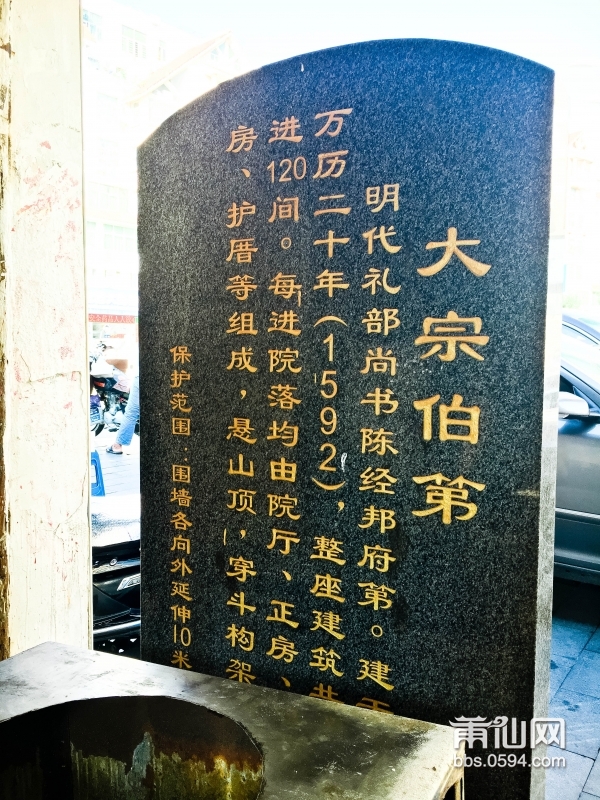 大宗伯第
明代礼部尚书陈经邦府第。建于
万历二十年(1592),整座建筑共
进120间。每进院落均由院厅、正房、
房、护厝等组成,悬山顶,穿斗构架
保护范围:围墙各向外延伸10米
莆仙网
bbs.0594.com